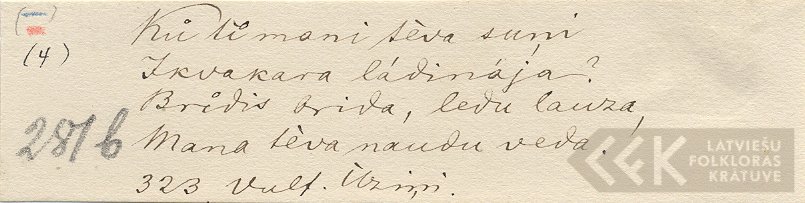 Ků tů mani tēva suņi
Ikvakara lādināja?
Brīdis brida, ledu lauza,
Mana tēva naudu veda.
323, Vulf. Ūziņi.
(4)
281b
LATVIEŠU
FOLKLORAS
KRĀTUVE